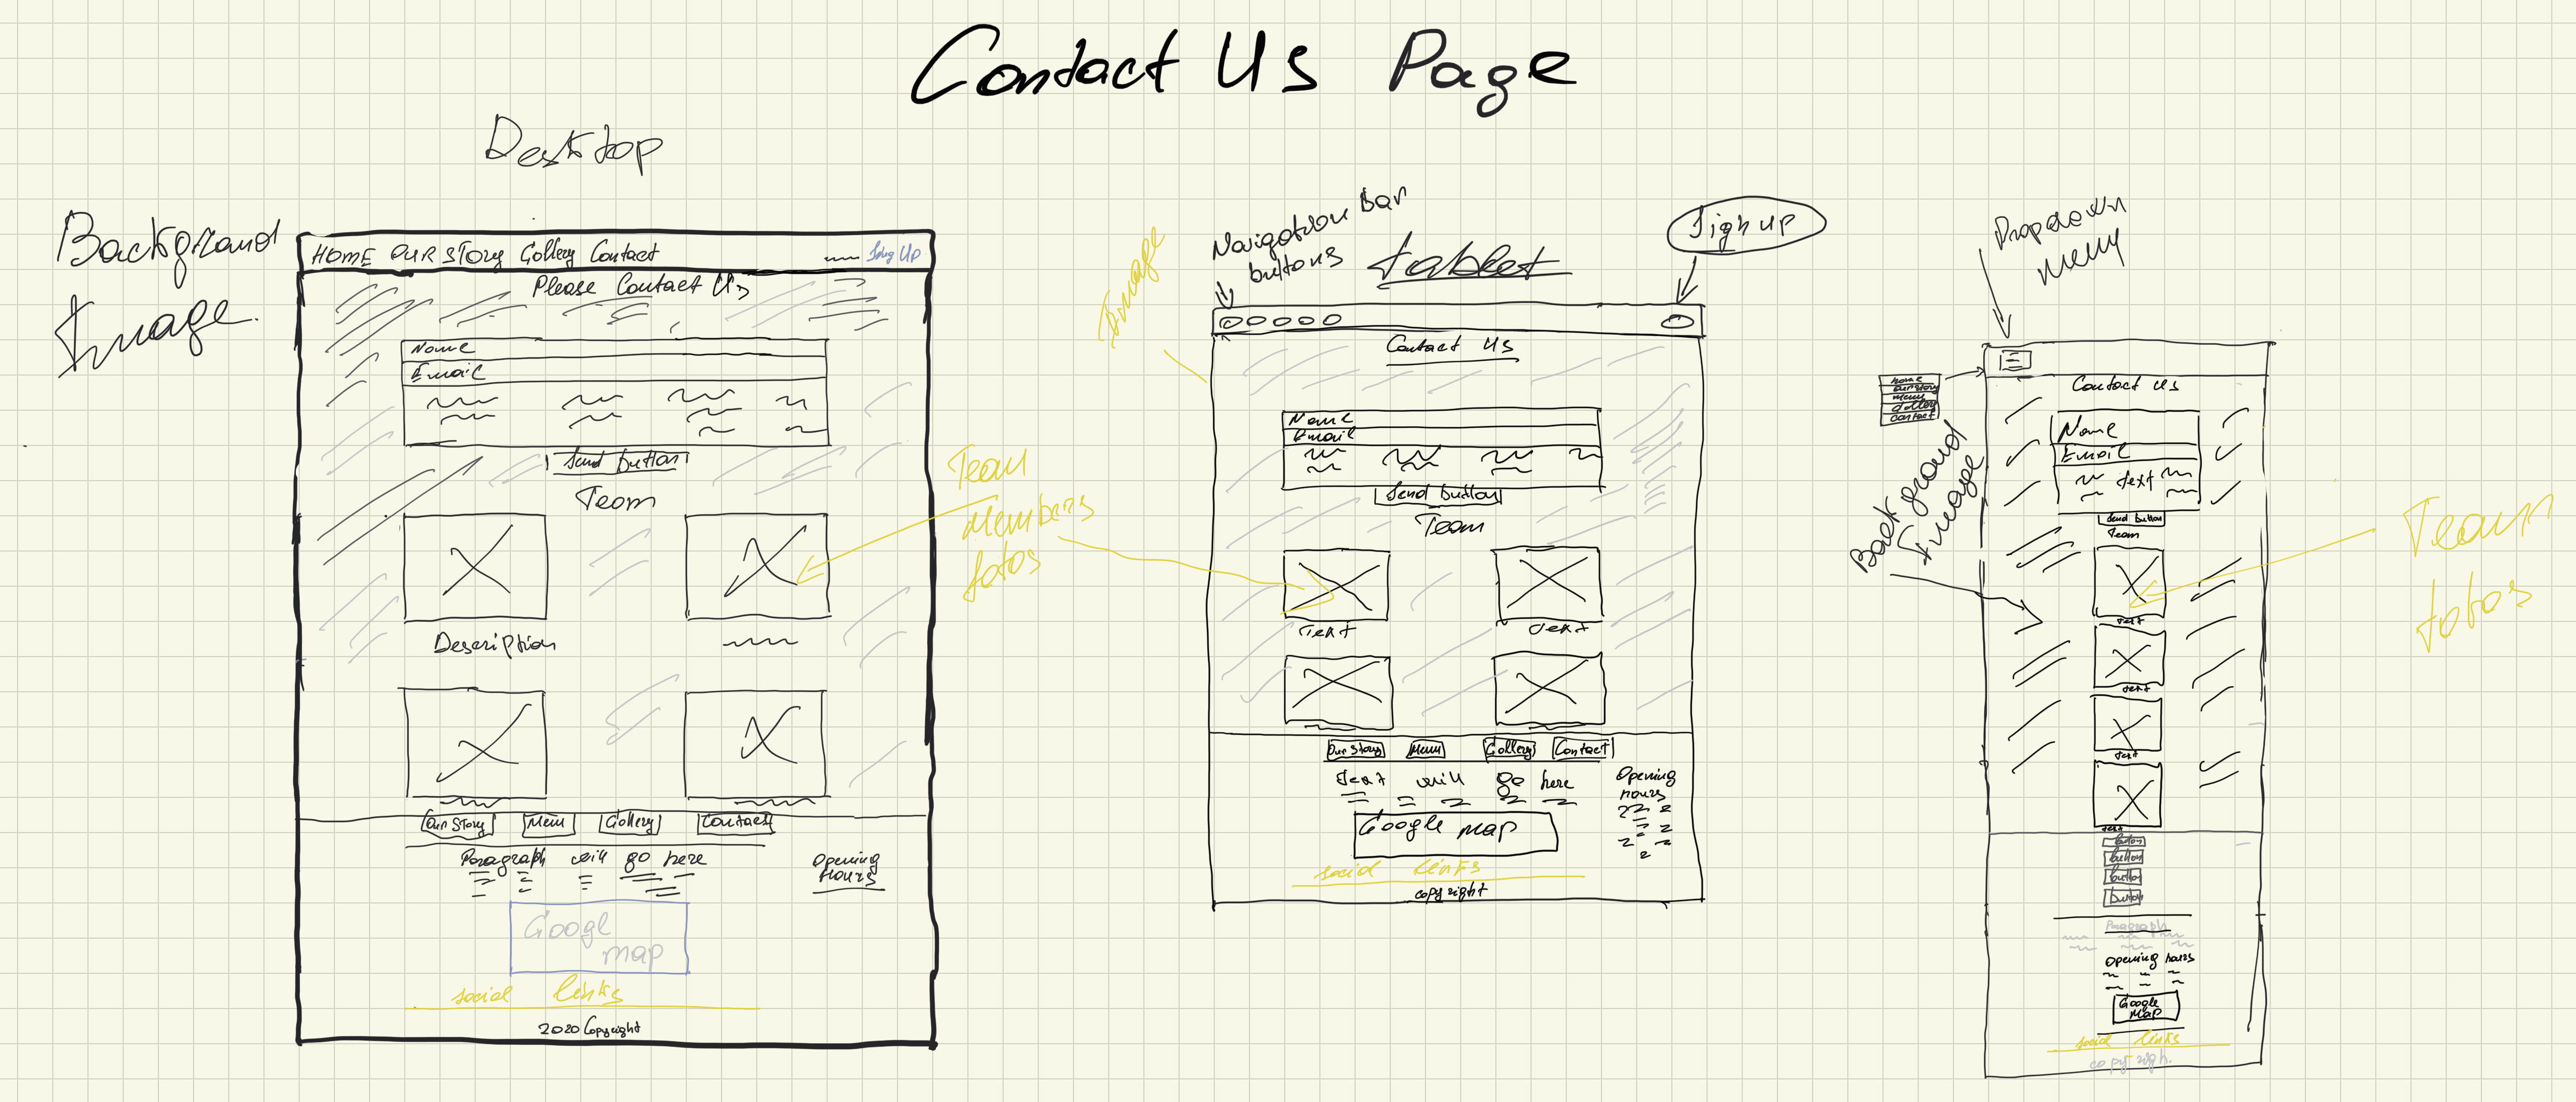 Contact Us Page
Desktop
Background
Image.
HOME OUR STORY Gallery Contact
Sing Up
Please Contact Us
Name
Email
Send button
Team
Description
Our Story
Menu
Gallery
Contact
Paragraph will go here
Opening
hours
Googl
map
social links
2020 Copyright
Team
Members
fotos
Image
Navigation Bar
buttons
tablet
Sign up
Contact Us
Name
Email
Send button
Team
Text
text
Our Story
Menu
Gallery
Contact
Text will go here
Opening
hours
Google map
social links
copyright
Dropdown
meny
Home
Our story
Menu
Gallery
Contact
Background
Image
Contact Us
Name
Email
text
Send button
Team
text
text
text
text
button
button
button
button
Paragraph
Opening hours
Google
Map
social links
copyrigh.
Team
fotos